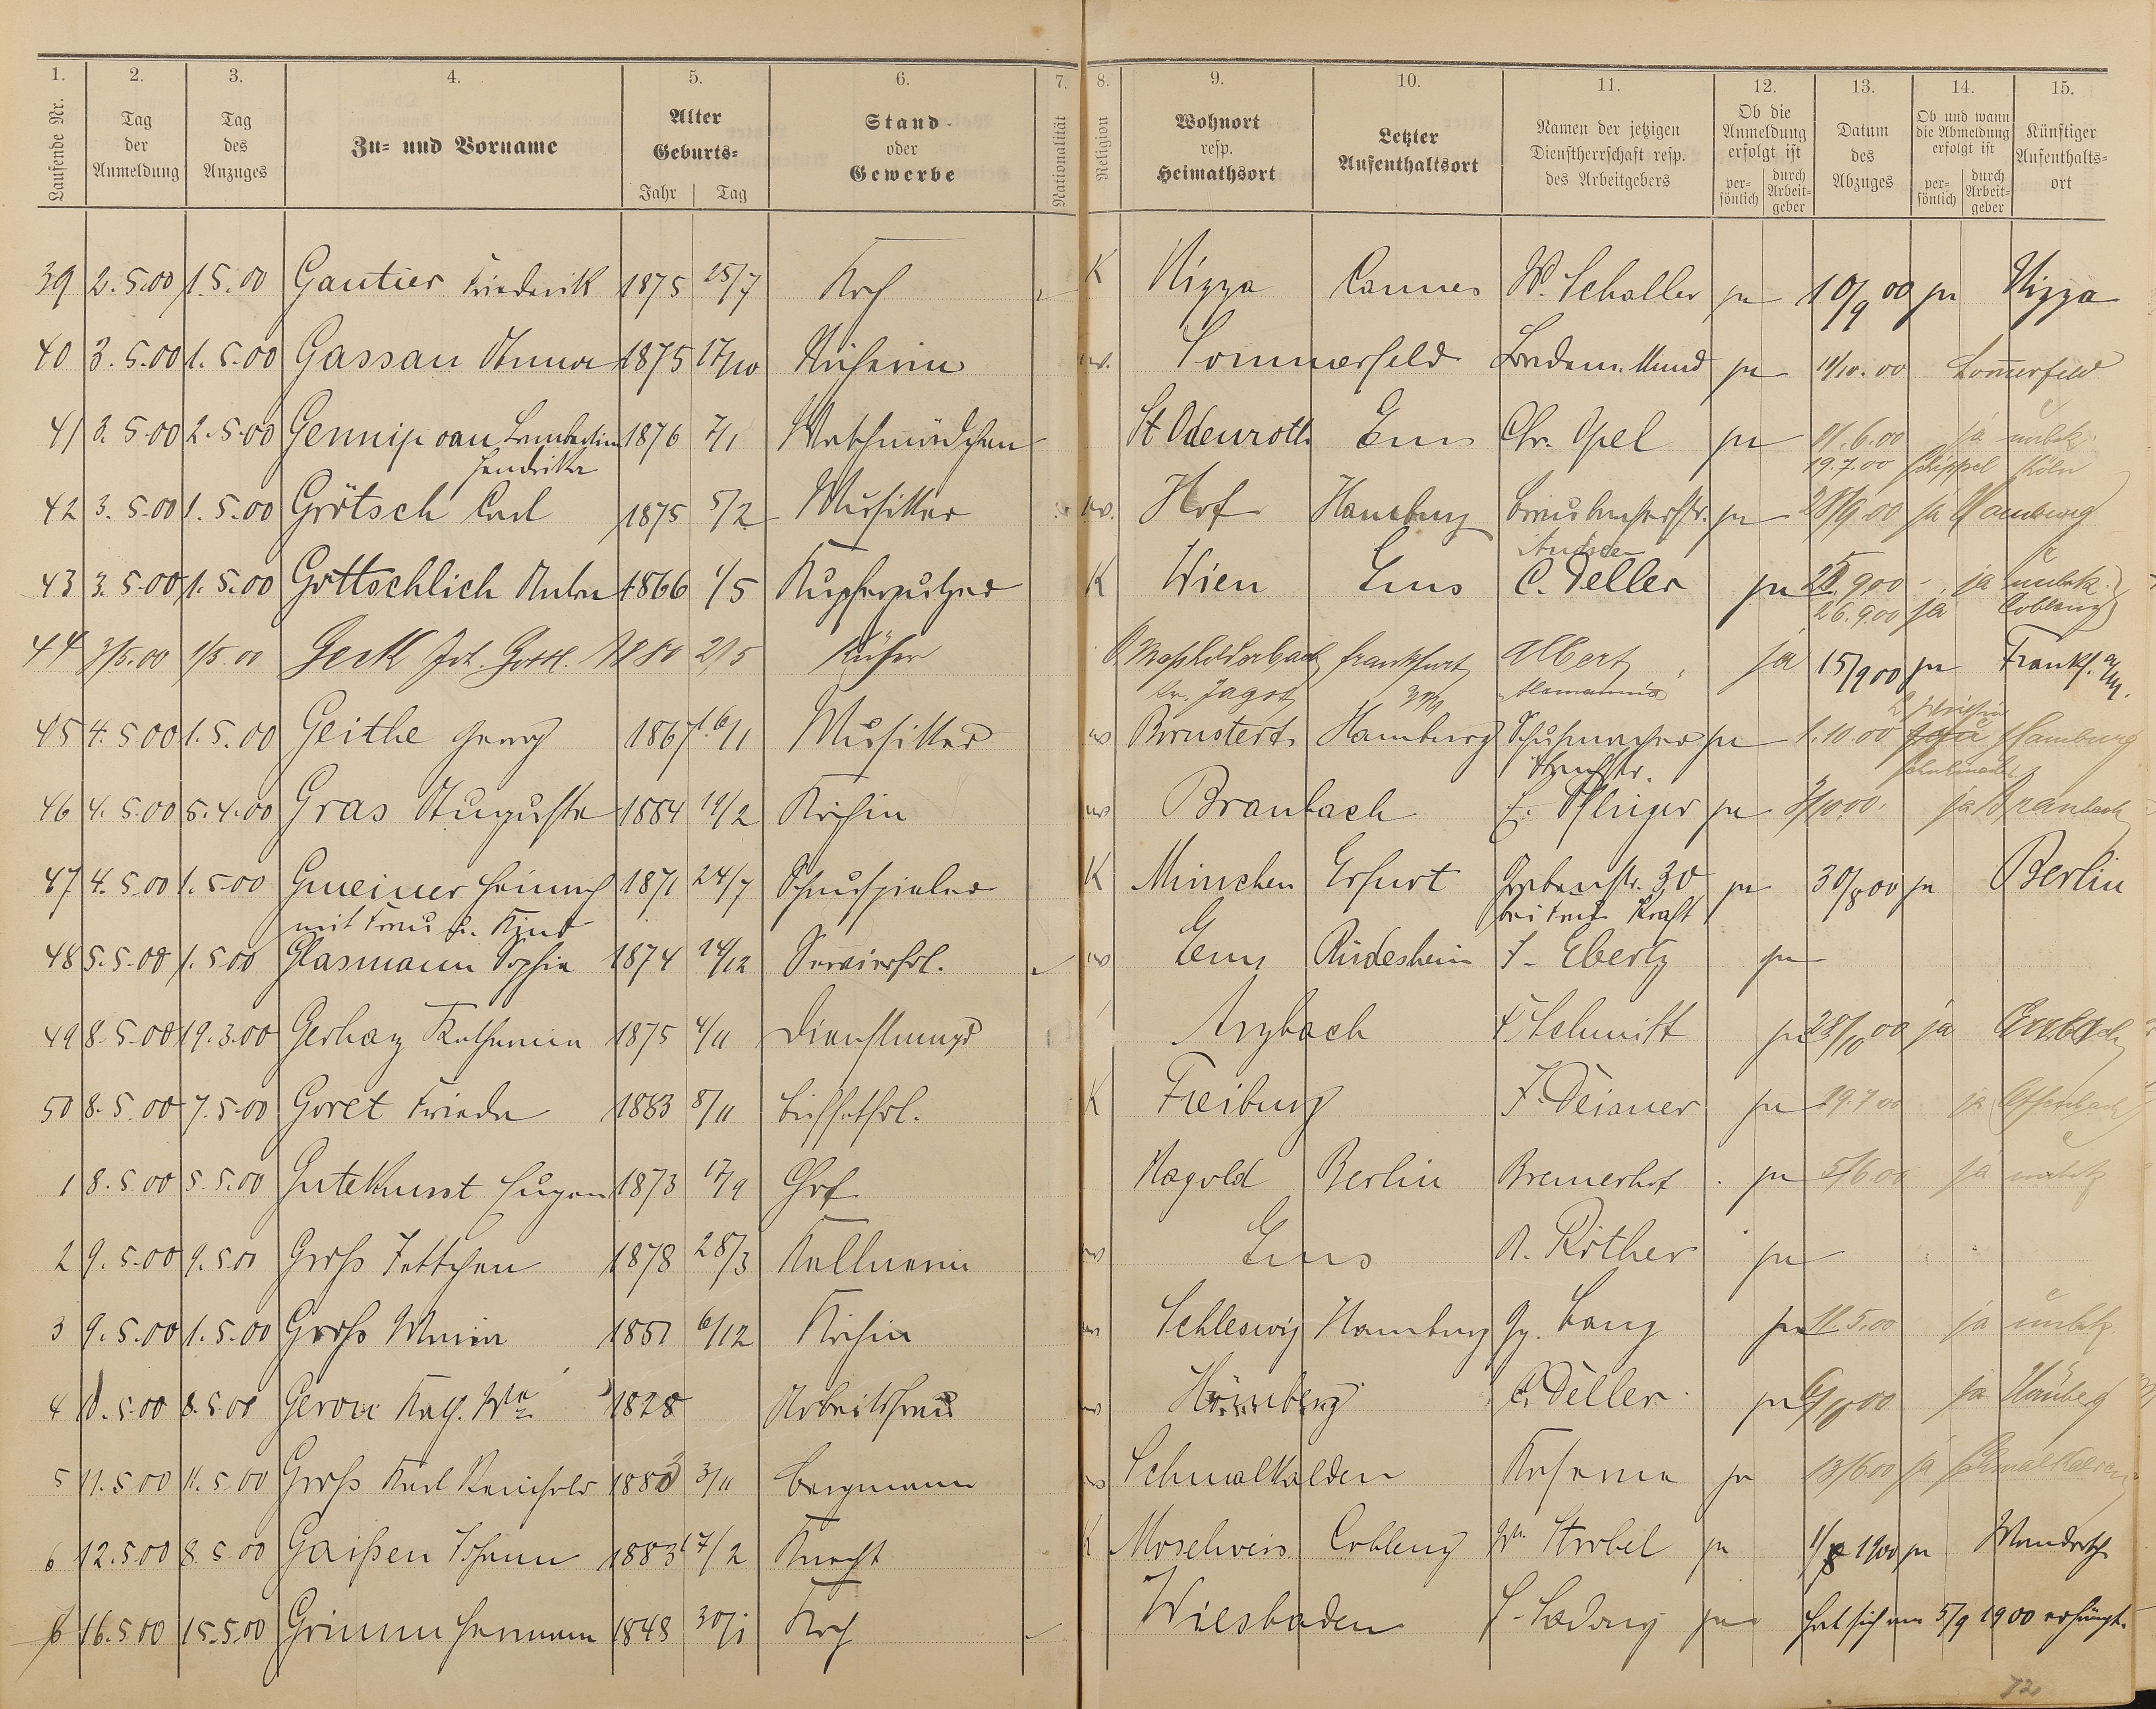 1. 2. 3. 4. 5. 6. 7. 8. 9. 10. 11. 12. 13. 14. 15.
Laufende Nr. | Tag der Anmeldung | Tag des Anzuges | Zu- und Vorname | Alter Geburts- Jahr | Tag | Stand oder Gewerbe | Nationalität | Religion | Wohnort resp. Heimathsort | Letzter Aufenthaltsort | Namen der jetzigen Dienstherrschaft resp. des Arbeitgebers | Ob die Anmeldung erfolgt ist persönlich | durch Arbeitgeber | Datum des Abzuges | Ob und wann die Abmeldung erfolgt ist persönlich | durch Arbeitgeber | Künftiger Aufenthaltsort
39 2.5.00 1.5.00 Gautier Friederik 1875 25/7 Koch K Nizza Cannes W. Schaller ja 10/9 00 ja Nizza
40 3.5.00 1.5.00 Gassau Anna 1875 17/10 Köchin ev. Sommerfeld Bredem. Mund ja 11/10.00 Som̅erfeld
41 3.5.00 2.5.00 Gennip van Lambertina 1876 7/1 Waschmädchen St Odenroth Ems Chr. Opel ja 01.6.00 ja unbek.
Hendrika 19.7.00 Schippel Köln
42 3.5.00 1.5.00 Grötsch Carl 1875 5/2 Musiker ev. Hof Hamburg ja 28/9.00 ja Hamburg
43 3.5.00 1.5.00 Gottschlich Anton 1866 1/5 Kupferputzer K Wien Ems C. Deller ja 9.00 - ja unbek.
26.9.00 ja Coblenz
44 3/5.00 1/5.00 Geck Joh. Gottl. 1880 2/5 Küfer Frankfurt Albert ja 15/9 00 ja Frankf. a/M.
Jagst Alemannia
45 4.5.00 1.5.00 Geithe Georg 1867 16/1 Musiker ev Hamburg Schuhmacher ja 1.10.00 Hamburg
46 4.5.00 5.4.00 Gras Auguste 1884 19/2 Köchin ev Braubach E. Pflüger ja ja Braubach
47 4.5.00 1.5.00 Gmeiner Heinrich 1871 24/7 Schauspieler K München Erfurt Grabenstr. 30 ja 30/8 00 ja Berlin
mit Frau u. Kind bei Kraft
48 5.5.00 1.5.00 Glasmann Sophie 1874 14/12 Servierfrl. ev Ems Rüdesheim J. Ebertz ja
49 8.5.00 19.3.00 Gerhaz Katharina 1875 4/11 Dienstmagd Arzbach Schmitt ja 28/10 00 ja
50 8.5.00 7.5.00 Goret Frieda 1883 8/11 Büffetfrl. K Freiburg F. Deisner ja 29.7 00 ja Offenbach
1 8.5.00 5.5.00 Gutekunst Eugen 1873 17/9 Chef Nagold Berlin Bremerhof ja 5/6.00 ja unbek
2 9.5.00 9.5.00 Groß Jettchen 1878 28/3 Kellnerin ev Ems A. Röther ja
3 9.5.00 1.5.00 Groß Maria 1851 6/12 Köchin ev Schleswig Hamburg Gg. Lang ja 11.5.00 ja unbek.
4 11.5.00 8.5.00 Kath. Wwe 1828 Arbeitsfrau ev Hömberg C. Deller ja ja
5 11.5.00 11.5.00 Groß Karl Reinhold 1883 3/11 Bergmann ev Schmalkalden Kaserne ja 13/6 00 ja Schmalkalden
6 12.5.00 8.5.00 Gaißen Johann 1883 17/2 Knecht K Moselweis Coblenz Ww Strobel ja 1/8 1900 ja
6 16.5.00 15.5.00 Grimm Hermann 1848 30/1 Koch Wiesbaden ja hat sich am 5/9 1900 erhängt.
72